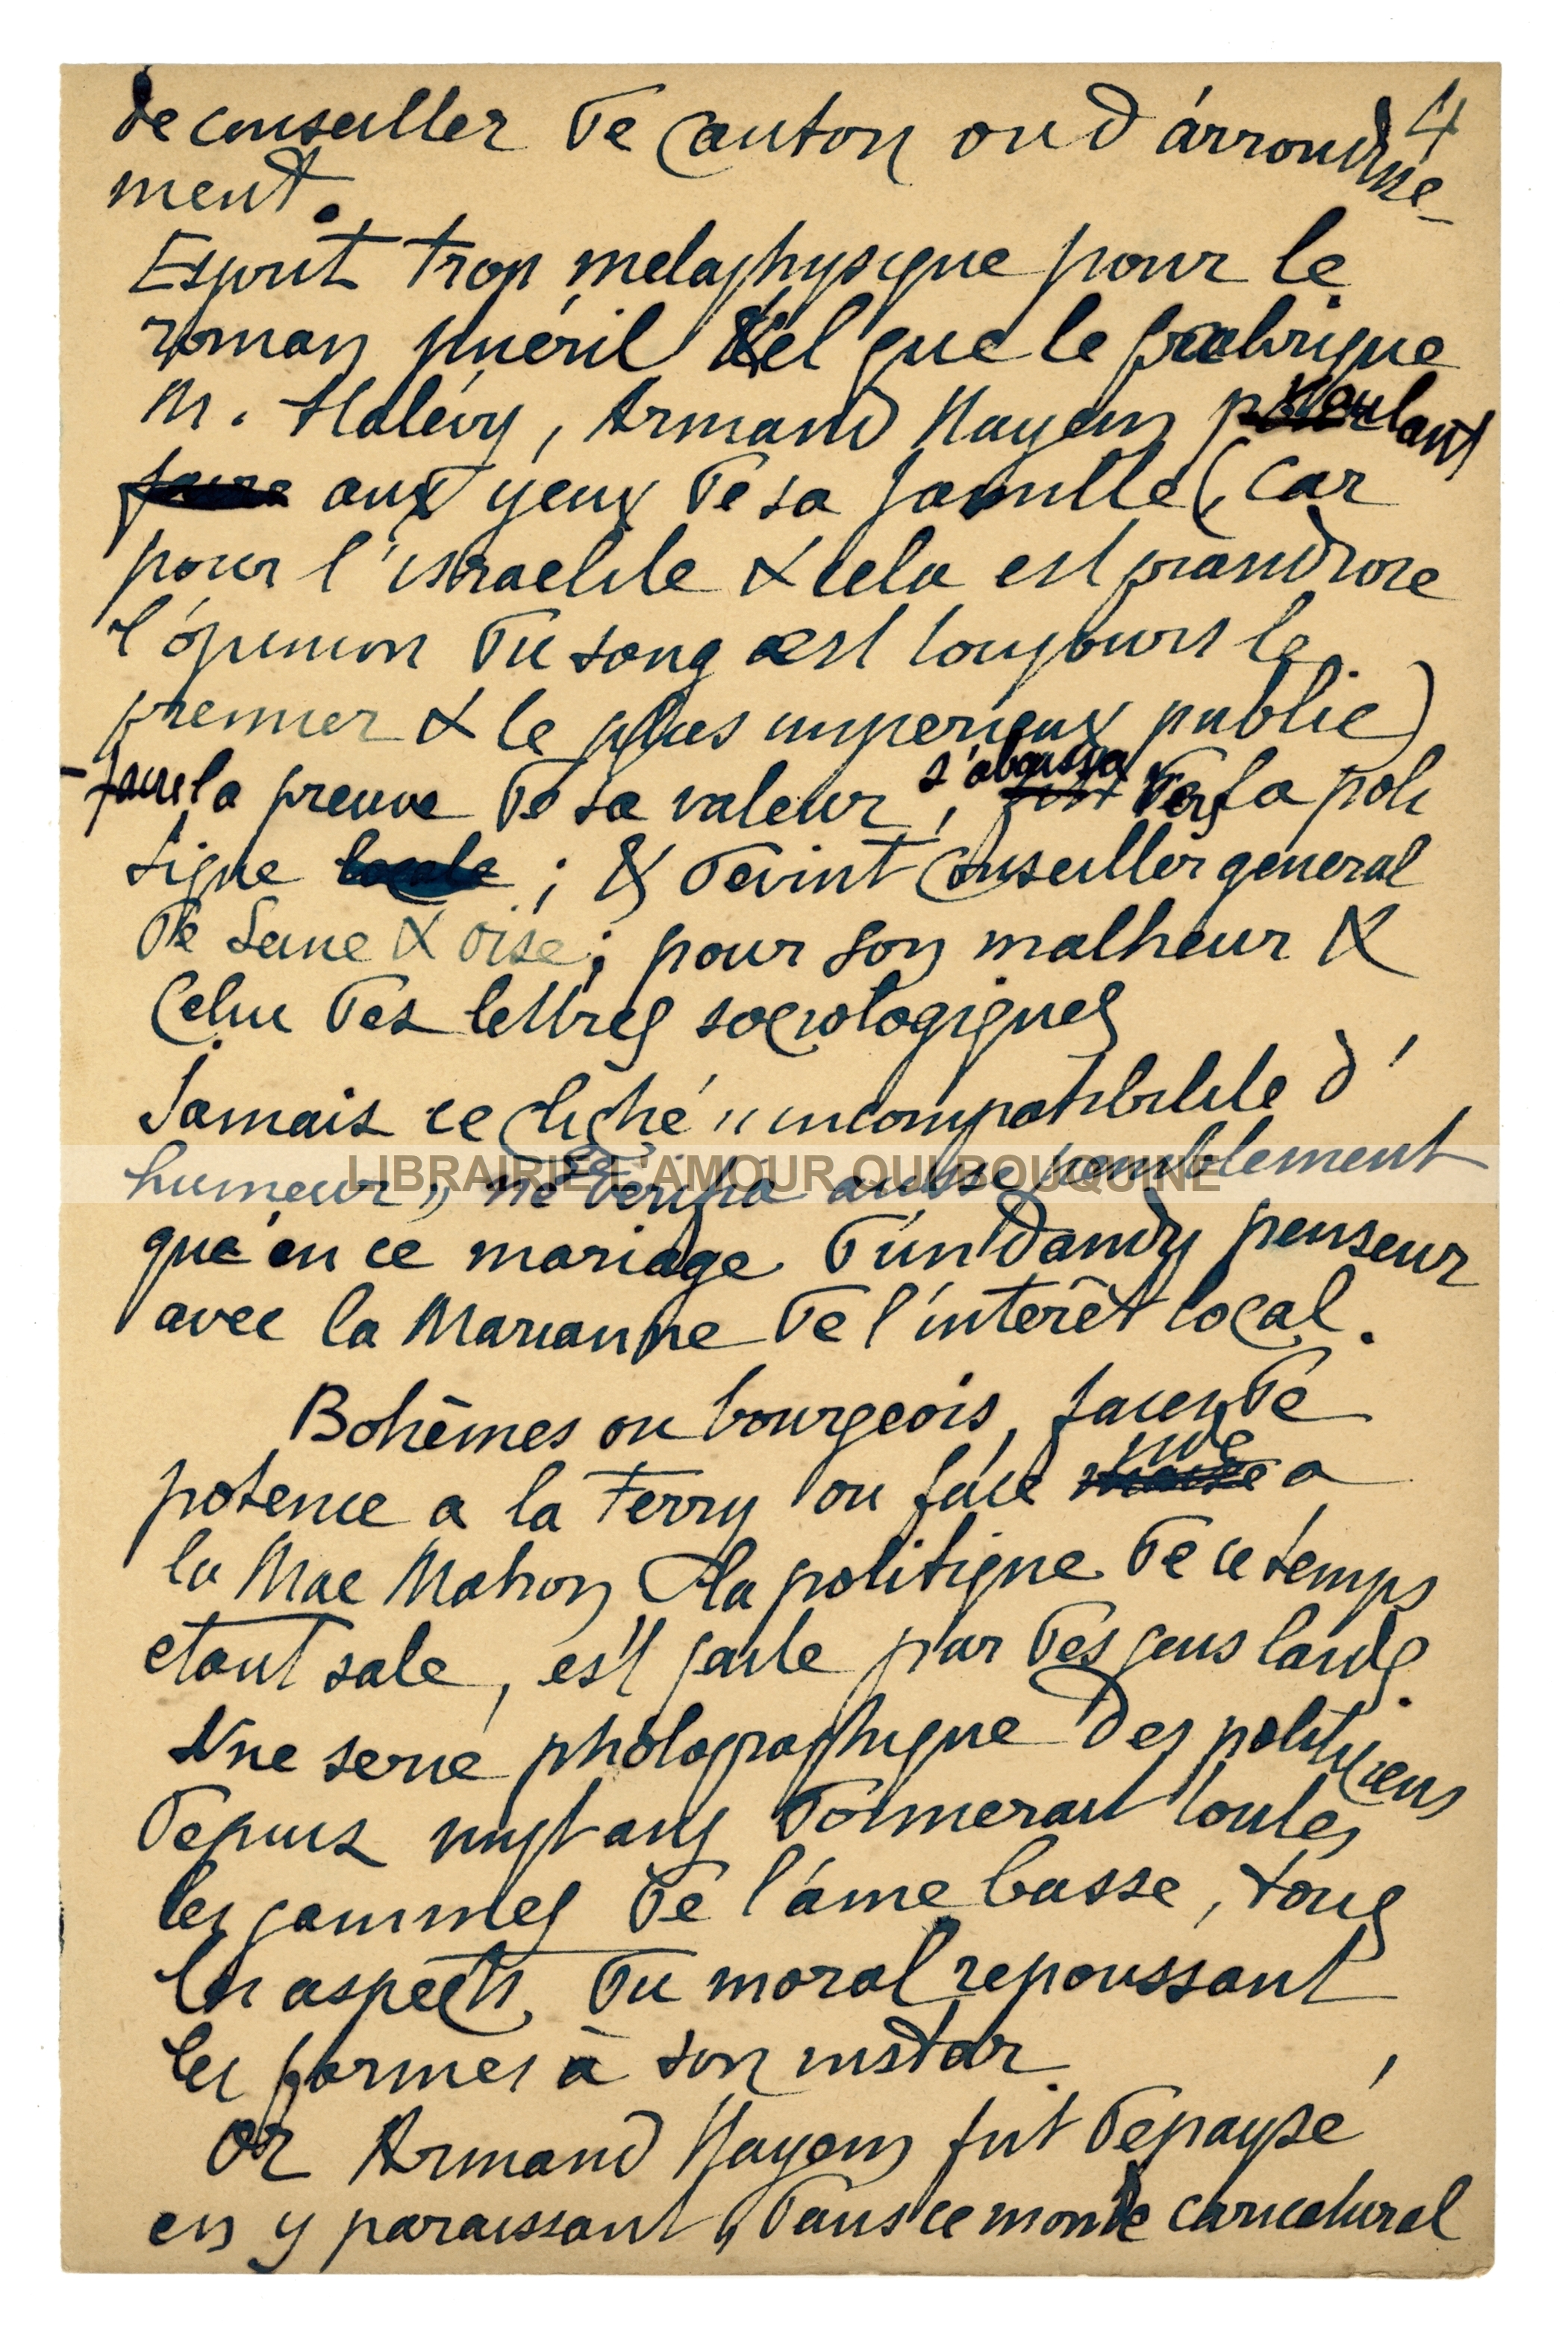 4
de conseiller de canton ou d'arrondisse-
ment.
Esprit trop metaphysique pour le
roman puéril tel que le fabrique
M. Halévy, Armand Hayem voulant
faire aux yeux de sa famille (car
pour l'israelite & cela est grandiose
l'opinion du sang est toujours le
premier & le plus imperieux public)
- faire la preuve de sa valeur, s'abaissa vers la poli
tique locale ; & devint Conseiller general
de Seine & oise ; pour son malheur &
Celui des lettres sociologiques
Jamais ce cliché "incompatibilite d'
humeur" ne verifia aussi
LIBRAIRIE L'AMOUR QUI BOUQUINE
que en ce mariage d'un Dandy penseur
avec la Marianne de l'interêt local.
Bohêmes ou bourgeois, faces de
potence a la Ferry ou face nulle a
la Mac Mahon la politique de ce temps
etant sale, est faite par des gens laids.
Une serie photographique des politiciens
depuis vingt ans donnerait toutes
les gammes de l'âme basse, tous
les aspects du moral repoussant
les formes à son instar.
Or Armand Hayem fut depaysé
en y paraissant, dans ce monde caricatural